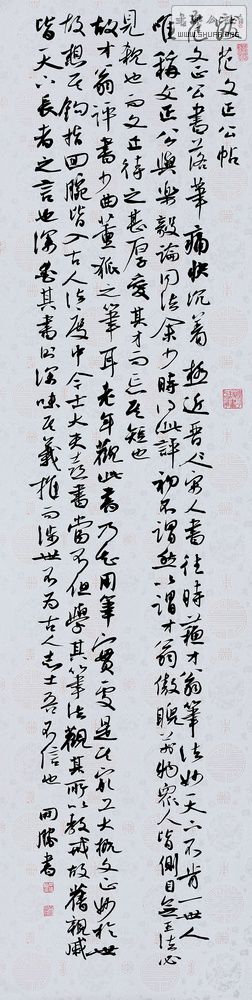 范文正公帖
范文正公書落筆痛快沉着極近晋宋人書往時蘓才翁筆法妙天下不肯一世人
唯稱文正公與樂毅論同法余少時得此評初不謂然以謂才翁傲睨萬物眾人皆側目無王法必
見殺也而文正待之甚厚愛其才而忘其短也
故才翁評書少曲董狐之筆耳老年觀此書乃知用筆實處是其最工大概文正妙於世
故想其鈎指回腕皆入古人法度中今士大夫喜書當不但學其筆法觀其所以教戒故舊親戚
皆天下長者之言也深愛其書則深味其義推而涉世不為古人志士吾不信也 書